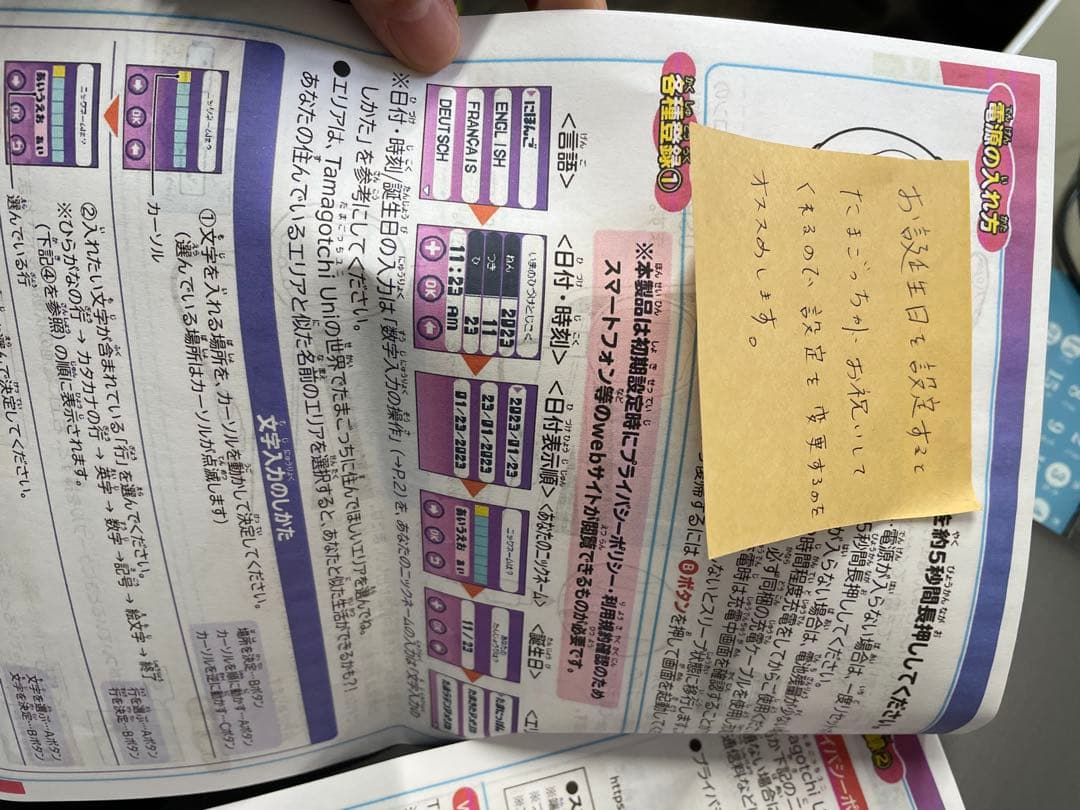 電源の入れ方
お誕生日を設定すると
たまごっちが、お祝いして
くれるので、設定を変更するのを
オススメします。
約5秒間長押ししてください
電源が入らない場合は、一度リセ
5秒間長押ししてください。
が入らない場合は、電池残量が
時間程度充電をしてからご使用くだ
必ず同梱の充電ケーブルを使用
充電時は充電中画面を確認すると
ないとスリープ状態に移行します
するにはBボタンを押して画面を起動して
各種登録①
※本製品は初期設定時にプライバシーポリシー・利用規約確認のため
スマートフォン等のwebサイトが閲覧できるものが必要です。
<言語>
<日付・時刻>
<日付表示順>
<あなたのニックネーム>
<誕生日>
にほんご
ENGLISH
FRANÇAIS
DEUTSCH
いまのひづけとじこく
ねん 2023
つき 11
ひ 23
11:23 AM
OK
2023/01/23
23/01/2023
01/23/2023
ニックネームは?
あいうえお
11/23
※日付・時刻/誕生日の入力は「数字入力の操作」(→P.2)を、あなたのニックネームの入力は「文字入力の
しかた」を参考にしてください。
●エリアは、Tamagotchi Uniの世界でたまごっちに住んでほしいエリアを選んでね。
あなたの住んでいるエリアと似た名前のエリアを選択すると、あなたと似た生活ができるかも?!
文字入力のしかた
①文字を入れる場所を、カーソルを動かして決定してください。
(選んでいる場所はカーソルが点滅します)
場所を決定…Bボタン
カーソルを順に動かす…Aボタン
カーソルを逆に動かす…Cボタン
ニックネームは?
OK
カーソル
②入れたい文字が含まれている「行」を選んでください。
※ひらがなの行→カタカナの行→英字→数字→記号→絵文字→終了
(下記④を参照)の順に表示されます。
行を選ぶ…Aボタン
行を決定…Bボタン
ニックネームは?
あいうえお
OK
選んでいる行
んで決定してください。
文字を選ぶ…Aボタン
文字を決定…Bボタン
https